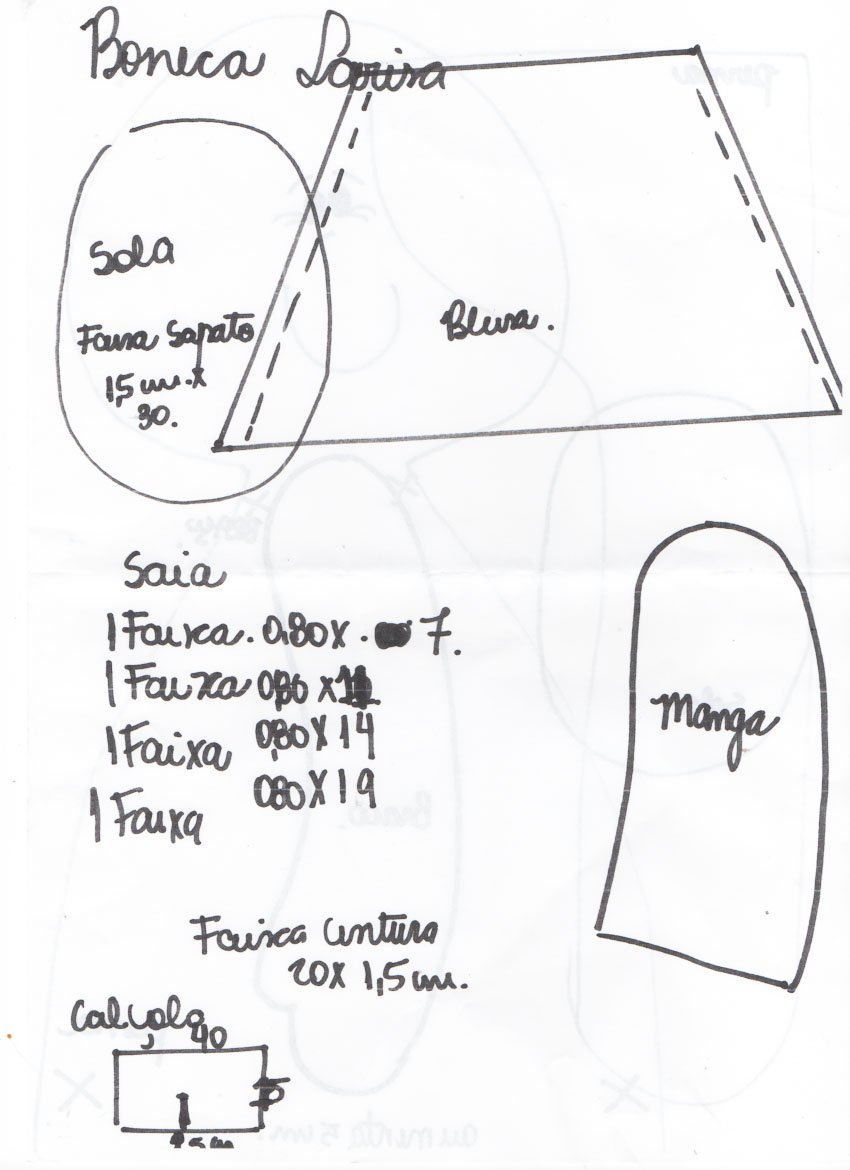 Boneca Larissa
Sola
Faixa Sapato
1,5 cm. x
30.
Blusa.
Saia
1 Faixa. 0,80 x . 7.
1 Faixa 0,80 x 11
1 Faixa 0,80 X 14
1 Faixa 0,80 X 19
Manga
Faixa Cintura
20 x 1,5 cm.
Calçola
40